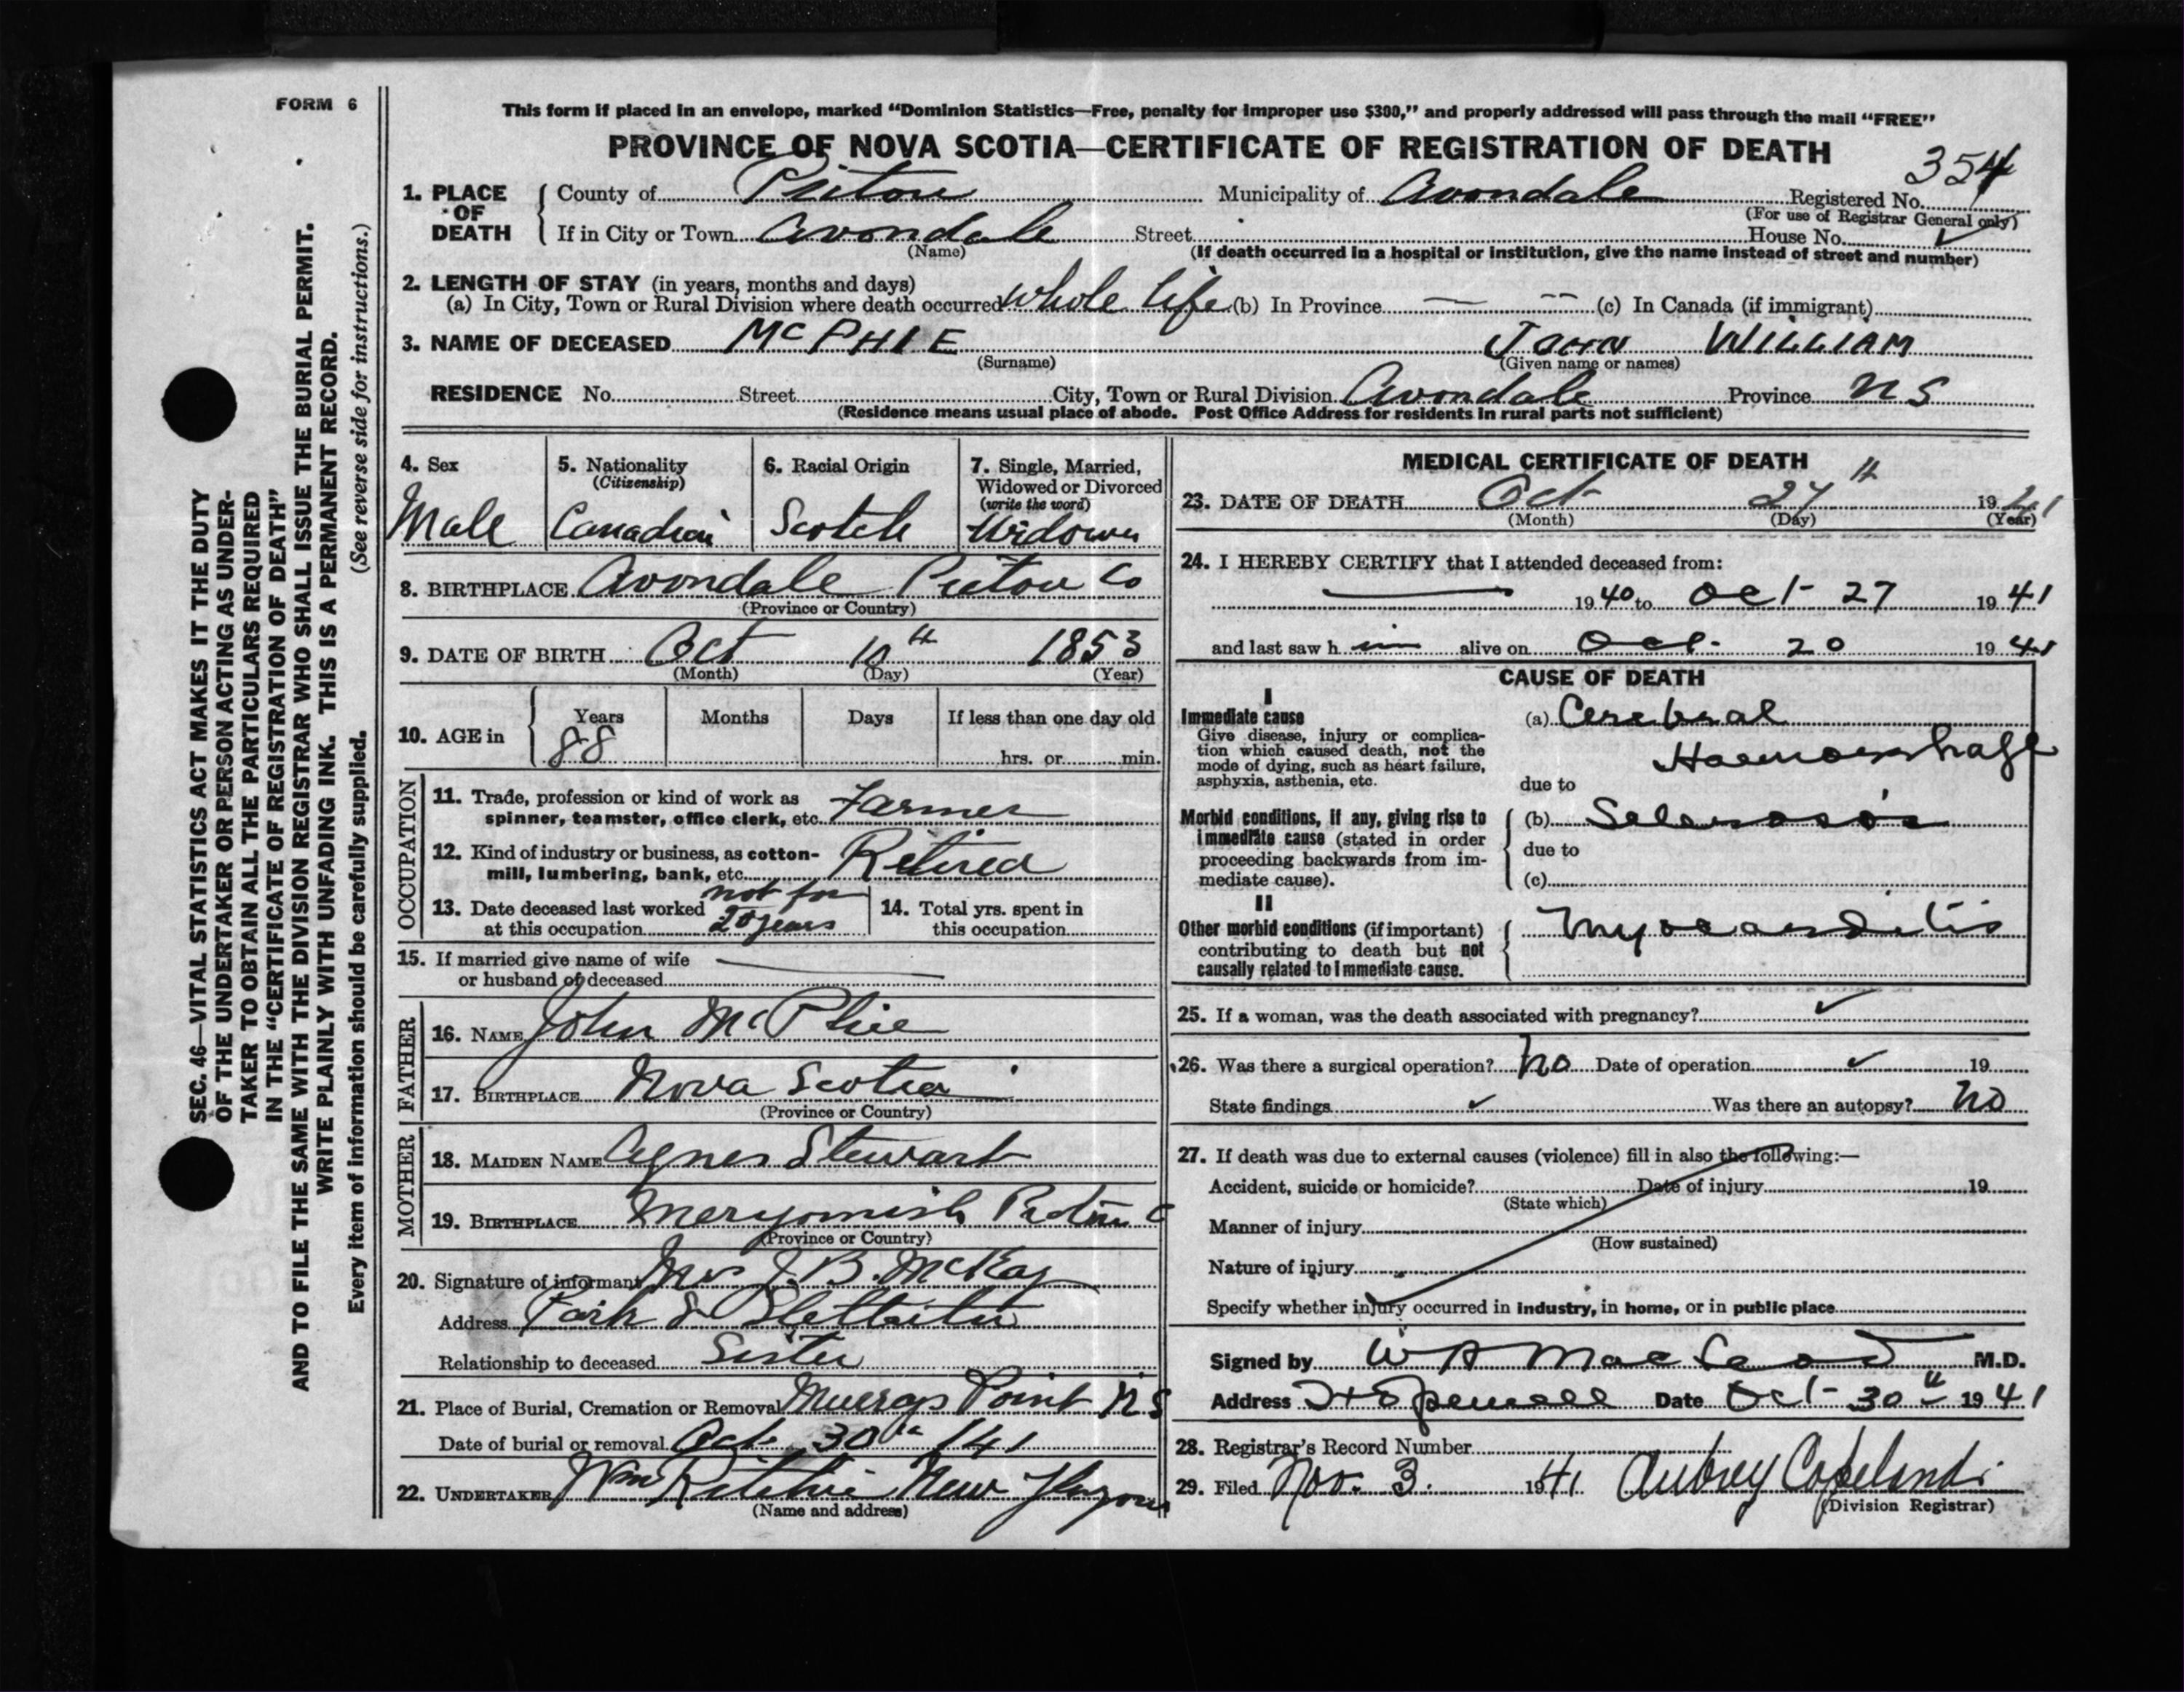 FORM 6
This form if placed in an envelope, marked “Dominion Statistics—Free, penalty for improper use $300,” and properly addressed will pass through the mail “FREE”
PROVINCE OF NOVA SCOTIA—CERTIFICATE OF REGISTRATION OF DEATH
354
1. PLACE OF DEATH County of Pictou Municipality of Avondale Registered No.
(For use of Registrar General only)
If in City or Town Avondale Street House No.
(Name)
(If death occurred in a hospital or institution, give the name instead of street and number)
2. LENGTH OF STAY (in years, months and days)
(a) In City, Town or Rural Division where death occurred whole life (b) In Province (c) In Canada (if immigrant)
3. NAME OF DECEASED McPHIE JOHN WILLIAM
(Surname) (Given name or names)
RESIDENCE No. Street City, Town or Rural Division Avondale Province NS
(Residence means usual place of abode. Post Office Address for residents in rural parts not sufficient)
4. Sex
Male
5. Nationality
(Citizenship)
Canadian
6. Racial Origin
Scotch
7. Single, Married,
Widowed or Divorced
(write the word)
Widower
8. BIRTHPLACE Avondale Pictou Co
(Province or Country)
9. DATE OF BIRTH Oct 10th 1853
(Month) (Day) (Year)
10. AGE in Years Months Days If less than one day old
88 hrs. or min.
OCCUPATION
11. Trade, profession or kind of work as
spinner, teamster, office clerk, etc. Farmer
12. Kind of industry or business, as cotton-
mill, lumbering, bank, etc. Retired
13. Date deceased last worked not for
at this occupation 20 years
14. Total yrs. spent in
this occupation
15. If married give name of wife
or husband of deceased
FATHER
16. NAME John McPhie
17. BIRTHPLACE Nova Scotia
(Province or Country)
MOTHER
18. MAIDEN NAME Agnes Stewart
19. BIRTHPLACE Merigomish Pictou C
(Province or Country)
20. Signature of informant Mrs J. B. McKay
Address Park St
Relationship to deceased Sister
21. Place of Burial, Cremation or Removal Murrays Point NS
Date of burial or removal Oct 30th /41
22. UNDERTAKER Wm Ritchie New Glasgow
(Name and address)
MEDICAL CERTIFICATE OF DEATH
23. DATE OF DEATH Oct 27th 1941
(Month) (Day) (Year)
24. I HEREBY CERTIFY that I attended deceased from:
1940 to Oct 27 1941
and last saw him alive on Oct. 20 1941
CAUSE OF DEATH
I
Immediate cause
Give disease, injury or complica-
tion which caused death, not the
mode of dying, such as heart failure,
asphyxia, asthenia, etc.
(a) Cerebral
Haemorrhage
due to
Morbid conditions, if any, giving rise to
immediate cause (stated in order
proceeding backwards from im-
mediate cause).
(b) Sclerosis
due to
(c)
II
Other morbid conditions (if important)
contributing to death but not
causally related to immediate cause.
Myocarditis
25. If a woman, was the death associated with pregnancy?
26. Was there a surgical operation? No Date of operation 19
State findings Was there an autopsy? No
27. If death was due to external causes (violence) fill in also the following:—
Accident, suicide or homicide? Date of injury 19
(State which)
Manner of injury
(How sustained)
Nature of injury
Specify whether injury occurred in industry, in home, or in public place
Signed by W A MacLeod M.D.
Address Hopewell Date Oct 30th 1941
28. Registrar's Record Number
29. Filed Nov. 3. 1941 Aubrey Copeland
(Division Registrar)
SEC. 46—VITAL STATISTICS ACT MAKES IT THE DUTY
OF THE UNDERTAKER OR PERSON ACTING AS UNDER-
TAKER TO OBTAIN ALL THE PARTICULARS REQUIRED
IN THE “CERTIFICATE OF REGISTRATION OF DEATH”
AND TO FILE THE SAME WITH THE DIVISION REGISTRAR WHO SHALL ISSUE THE BURIAL PERMIT.
WRITE PLAINLY WITH UNFADING INK. THIS IS A PERMANENT RECORD.
Every item of information should be carefully supplied. (See reverse side for instructions.)